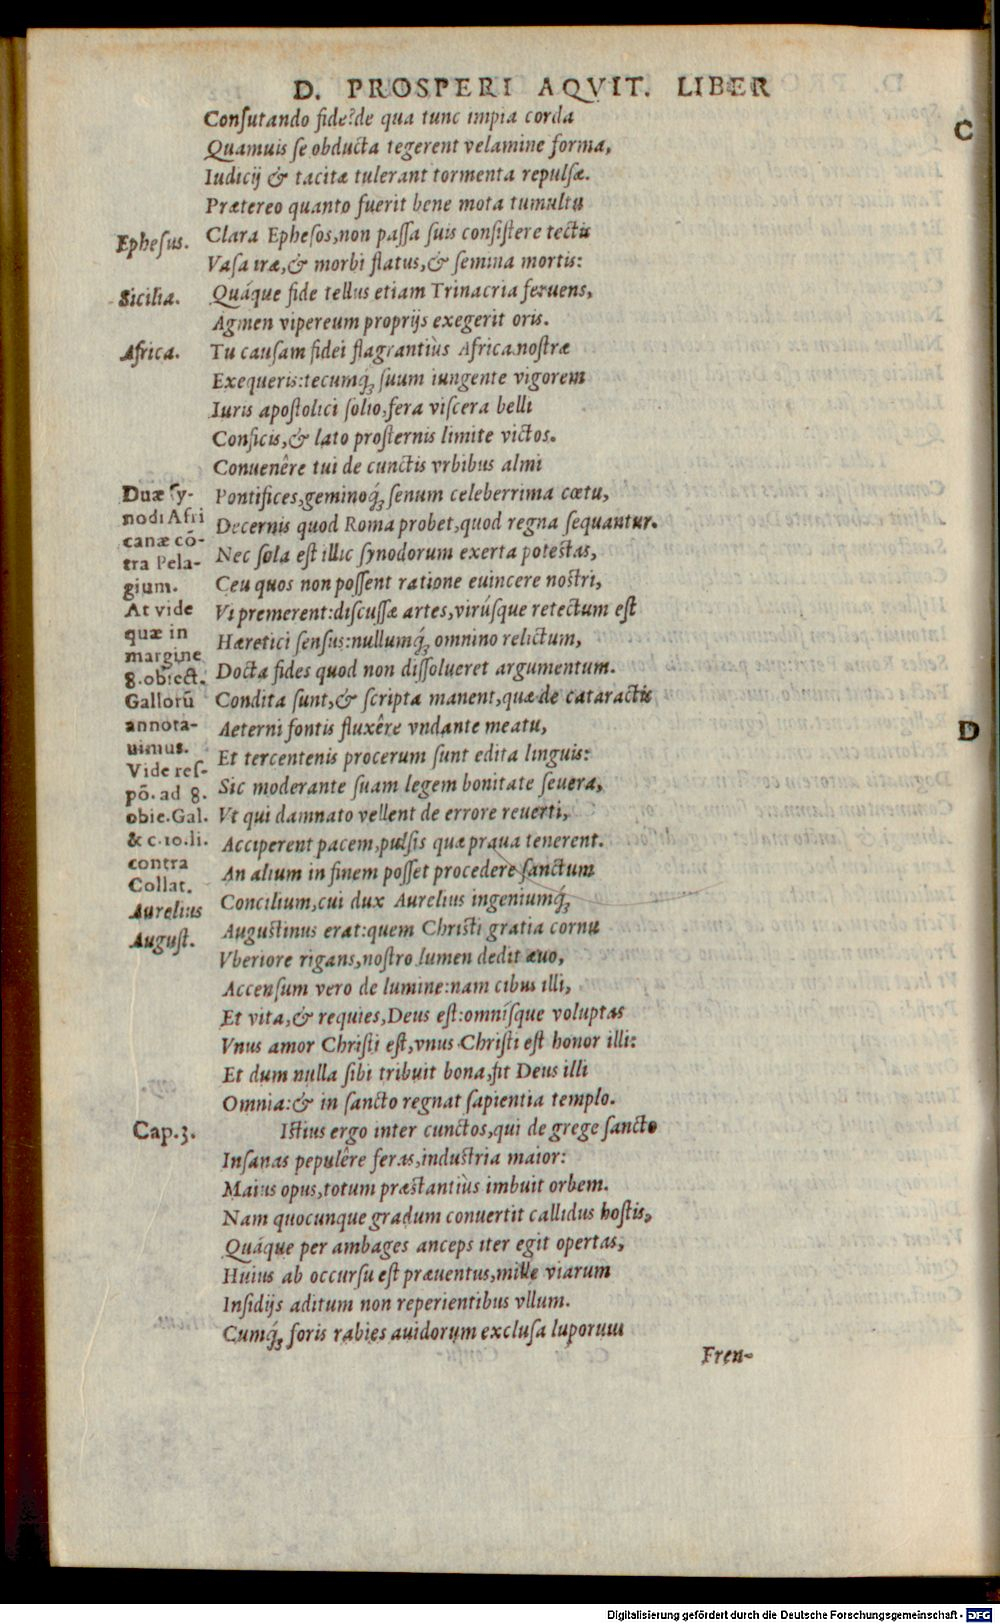 D. PROSPERI AQVIT. LIBER
Confutando fide? de qua tunc impia corda
C
Quamuis se obducta tegerent velamine forma,
Iudicij & tacitæ tulerant tormenta repulsæ.
Prætereo quanto fuerit bene mota tumultu
Ephesus.
Clara Ephesos, non passa suis consistere tectis
Vasa iræ, & morbi flatus, & semina mortis:
Sicilia.
Quáque fide tellus etiam Trinacria feruens,
Agmen vipereum proprijs exegerit oris.
Africa.
Tu causam fidei flagrantiùs Africa nostræ
Exequeris: tecumq́; suum iungente vigorem
Iuris apostolici solio, fera viscera belli
Conficis, & lato prosternis limite victos.
Conuenêre tui de cunctis vrbibus almi
Duæ sy-
nodi Afri
canæ cō-
tra Pela-
gium.
At vide
quæ in
margine
8. obiect.
Gallorū
annota-
uimus.
Vide res-
pō. ad 8.
obie. Gal.
& c. 10. li.
contra
Collat.
Pontifices, geminoq́; senum celeberrima cœtu,
Decernis quod Roma probet, quod regna sequantur.
Nec sola est illic synodorum exerta potestas,
Ceu quos non possent ratione euincere nostri,
Vi premerent: discussæ artes, virúsque retectum est
Hæretici sensus: nullumq́; omnino relictum,
Docta fides quod non dissolueret argumentum.
Condita sunt, & scripta manent, quæ de cataractis
Aeterni fontis fluxêre vndante meatu,
D
Et tercentenis procerum sunt edita linguis:
Sic moderante suam legem bonitate seuera,
Vt qui damnato vellent de errore reuerti,
Acciperent pacem, pulsis quæ praua tenerent.
An alium in finem posset procedere sanctum
Aurelius
Concilium, cui dux Aurelius ingeniumq́;
August.
Augustinus erat: quem Christi gratia cornu
Vberiore rigans, nostro lumen dedit æuo,
Accensum vero de lumine: nam cibus illi,
Et vita, & requies, Deus est: omnísque voluptas
Vnus amor Christi est, vnus Christi est honor illi:
Et dum nulla sibi tribuit bona, fit Deus illi
Omnia: & in sancto regnat sapientia templo.
Cap. 3.
Istius ergo inter cunctos, qui de grege sancto
Insanas pepulêre feras, industria maior:
Maius opus, totum præstantiùs imbuit orbem.
Nam quocunque gradum conuertit callidus hostis,
Quáque per ambages anceps iter egit opertas,
Huius ab occursu est præuentus, mille viarum
Insidijs aditum non reperientibus vllum.
Cumq́; foris rabies auidorum exclusa luporum
Fren-
Digitalisierung gefördert durch die Deutsche Forschungsgemeinschaft - DFG